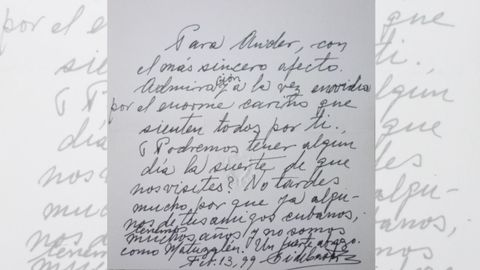 Para Ander, con
el más sincero afecto.
Admiración y a la vez envidia
por el enorme cariño que
sienten todos por ti.,
¿Podremos tener algun
día la suerte de que
nos visites? No tardes
mucho, por que ya algu-
nos de tus amigos cubanos,
tenemos
muchos años y no somos
como Matuzalén. Un fuerte abrazo.
Fet. 13, 99